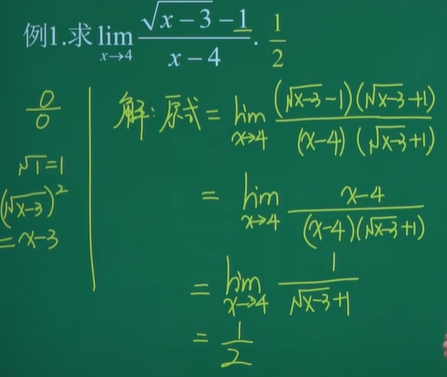 例1.求 lim_{x→4} (√(x−3) −1)/(x−4). 1/2
0/0
√1=1
(√(x-3))²
=x-3
解:原式= lim_{x→4} (√(x-3)-1)(√(x-3)+1)/((x-4)(√(x-3)+1))
= lim_{x→4} (x-4)/((x-4)(√(x-3)+1))
= lim_{x→4} 1/(√(x-3)+1)
= 1/2